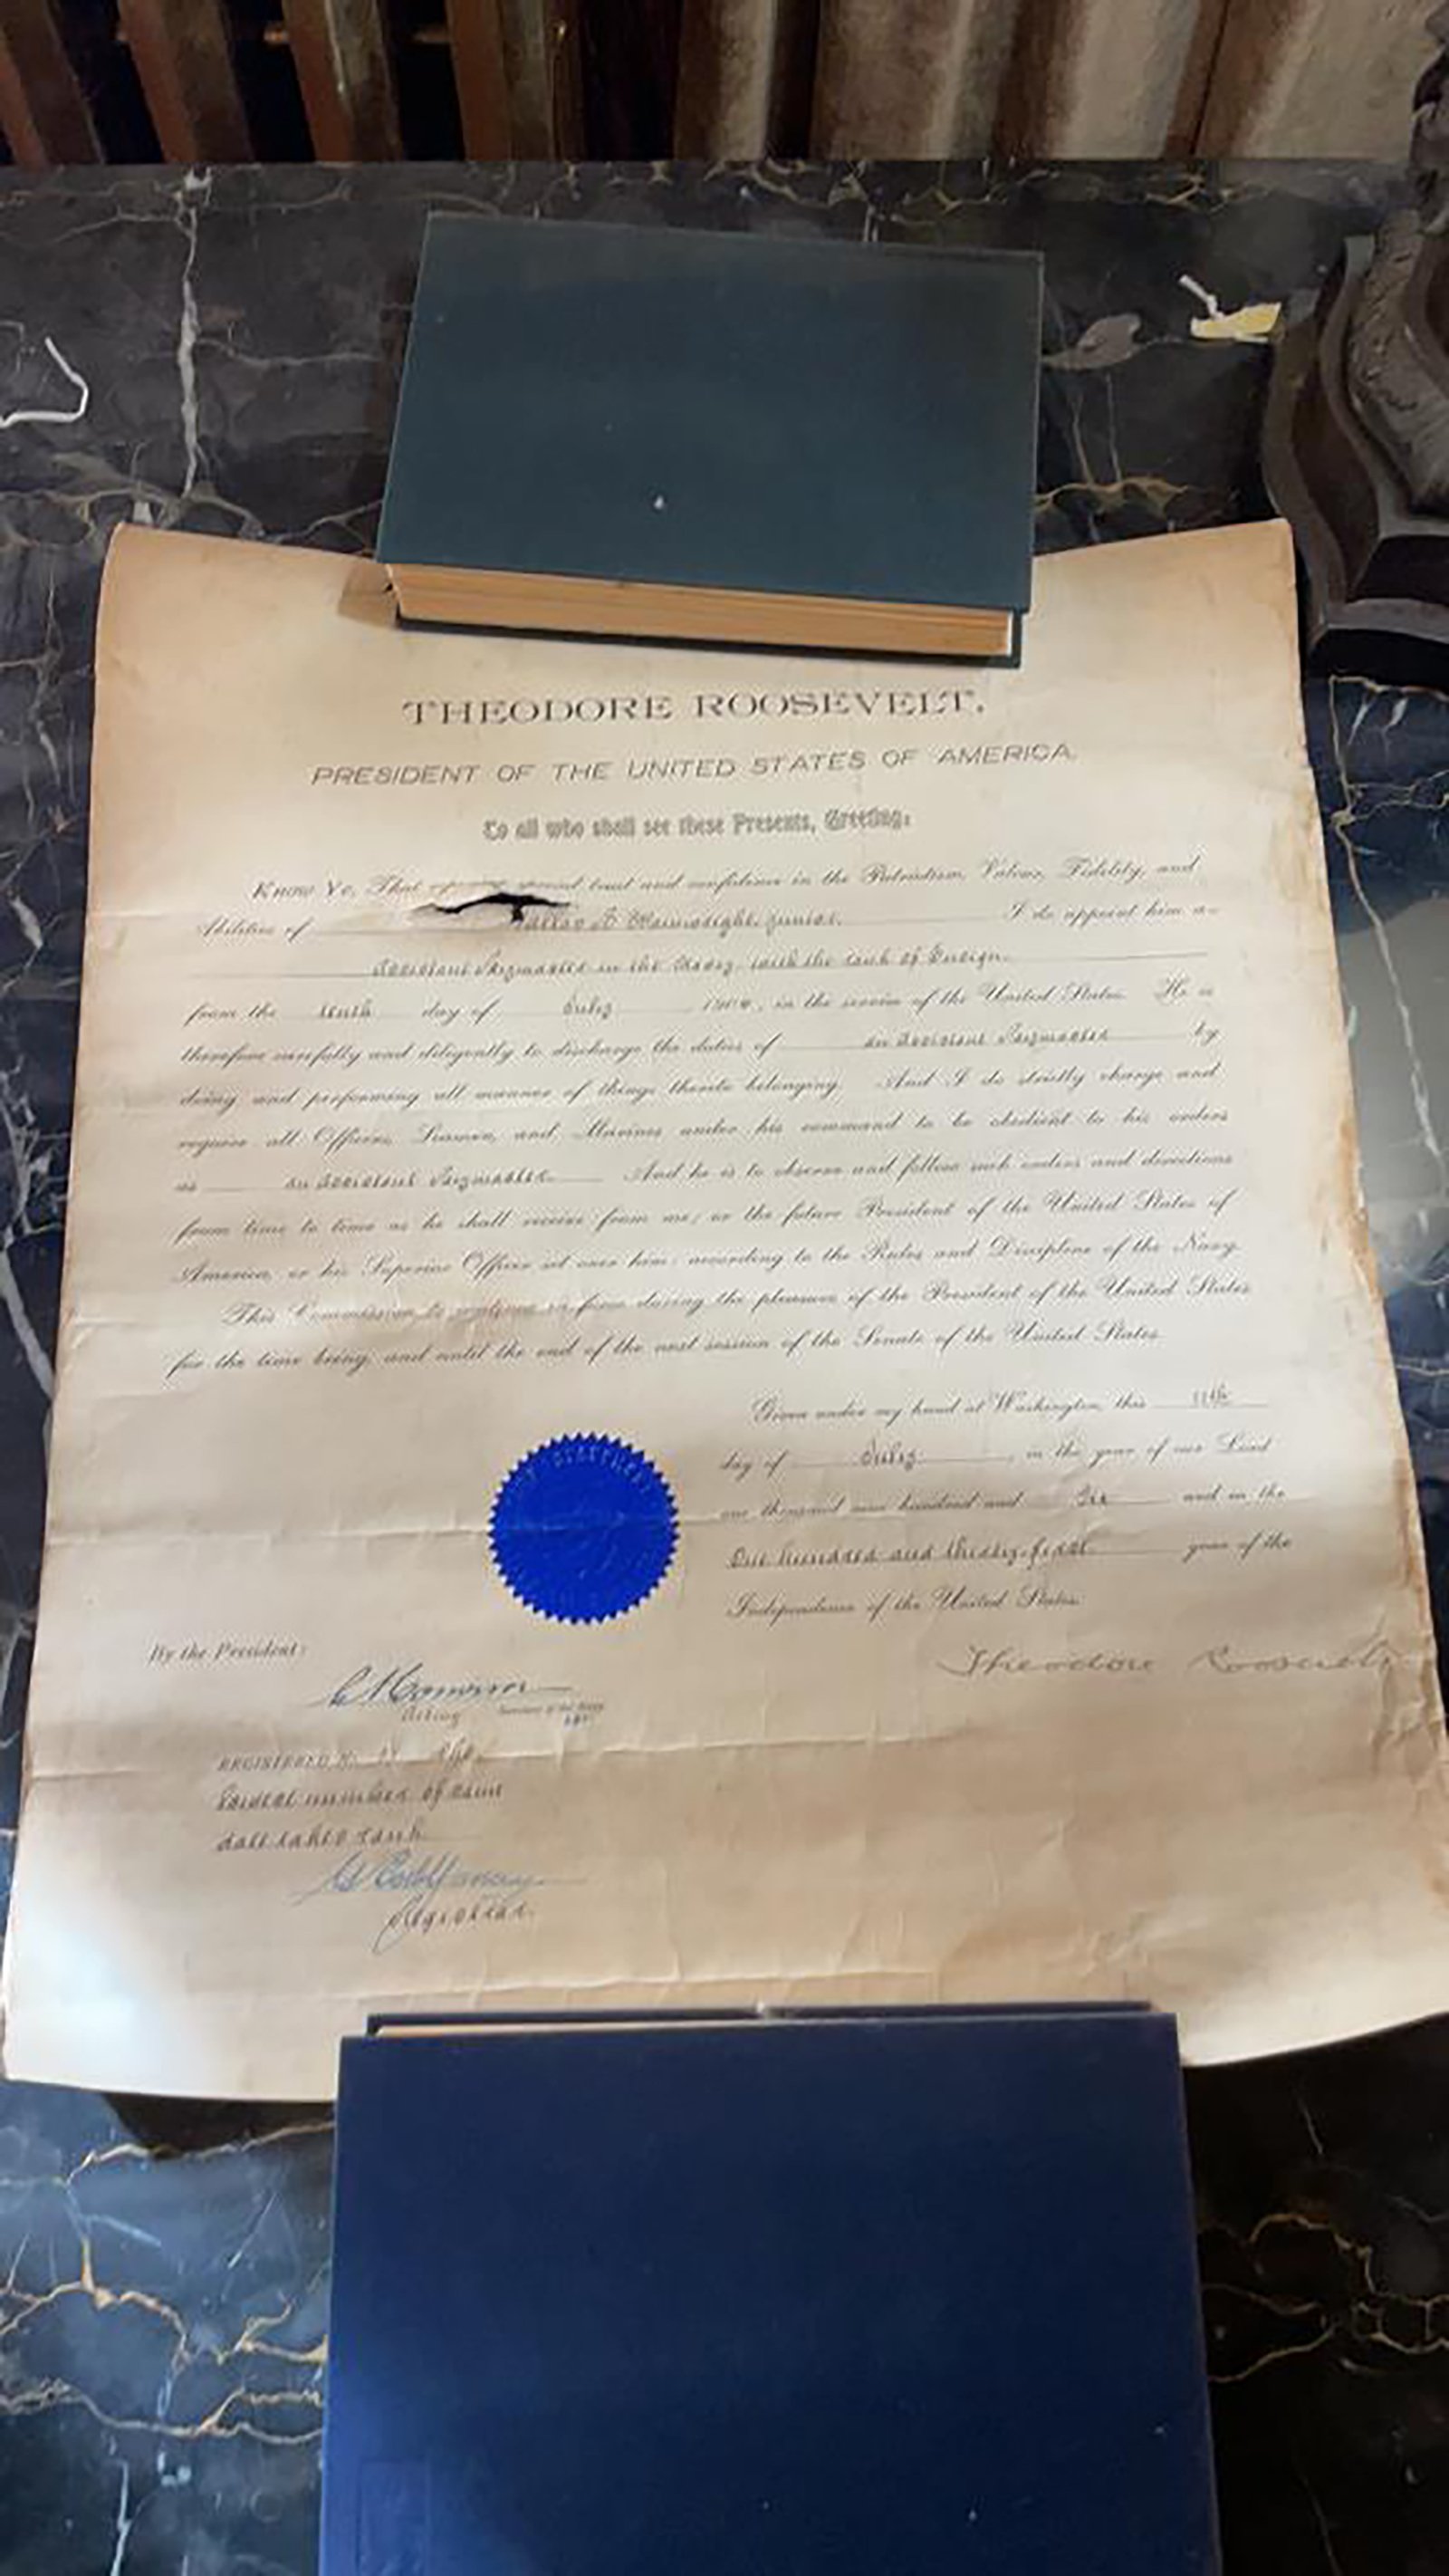 THEODORE ROOSEVELT.
PRESIDENT OF THE UNITED STATES OF AMERICA.
To all who shall see these Presents, Greeting:
Know Ye, That special trust and confidence in the Patriotism, Valour, Fidelity, and
Abilities of Wainwright, junior. I do appoint him an
Assistant Paymaster in the Navy, with the rank of Ensign
from the tenth day of July , in the service of the United States. He is
therefore carefully and diligently to discharge the duties of an Assistant Paymaster by
doing and performing all manner of things thereto belonging. And I do strictly charge and
require all Officers, Seamen, and Marines under his command to be obedient to his orders
as an Assistant Paymaster And he is to observe and follow such orders and directions
from time to time as he shall receive from me, or the future President of the United States of
America, or his Superior Officer set over him, according to the Rules and Discipline of the Navy.
This Commission to continue in force during the pleasure of the President of the United States
for the time being, and until the end of the next session of the Senate of the United States.
Given under my hand at Washington, this 11th
day of July , in the year of our Lord
one thousand nine hundred and Six and in the
One hundred and thirty-first year of the
Independence of the United States.
By the President:
Theodore Roosevelt
Acting Secretary of the Navy
REGISTERED No.
Lowest number of same
date takes rank
Registrar.